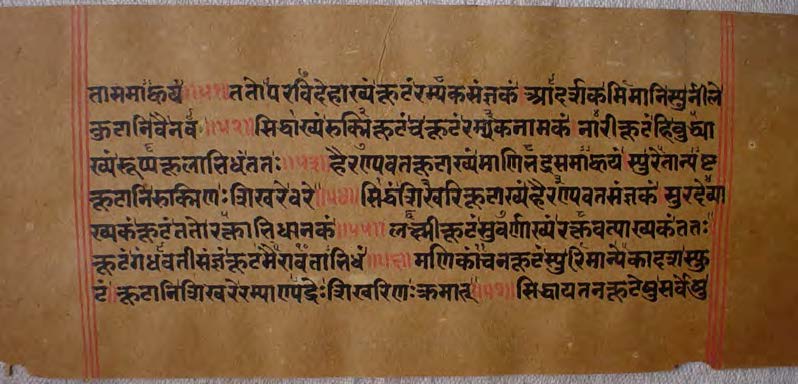 ताममाकयं ॥५१॥ ततोपरविदेहाख्यं कूटंरम्यकसंज्ञकं आदर्शकमिमानिस्युर्नीले
कुटानिवैनव ॥५२॥ सिद्धाख्यंरुक्मिकूटंचकूटंरम्यकनामकं नारीकूटंहिबुद्ध्या
ख्यंरूप्यकूलाभिधंततः ॥५३॥ हैरण्यवतकूटाख्यंमाणिभद्रसमाकयं स्युरेतान्यष्ट
कूटानिरुक्मिणःशिखरेवरे ॥५४॥ सिद्धंशिखरिकूटाख्यंहैरण्यवतसंज्ञकं सुरदेव्या
ख्यकंकूटंततोरक्ताभिधानकं ॥५५॥ लक्ष्मीकूटंसुवर्णाख्यंरक्तवत्याख्यकंततः
कूटंगंधर्वतीसंज्ञंकूटमैरावताभिधं ॥५६॥ मणिकांचनकूटंस्युरिमान्येकादशस्फु
टं कूटानिशिखरेरम्याण्यद्रेःशिखरिणःक्रमात् ॥५७॥ सिद्धायतनकूटेषुसर्वेषु